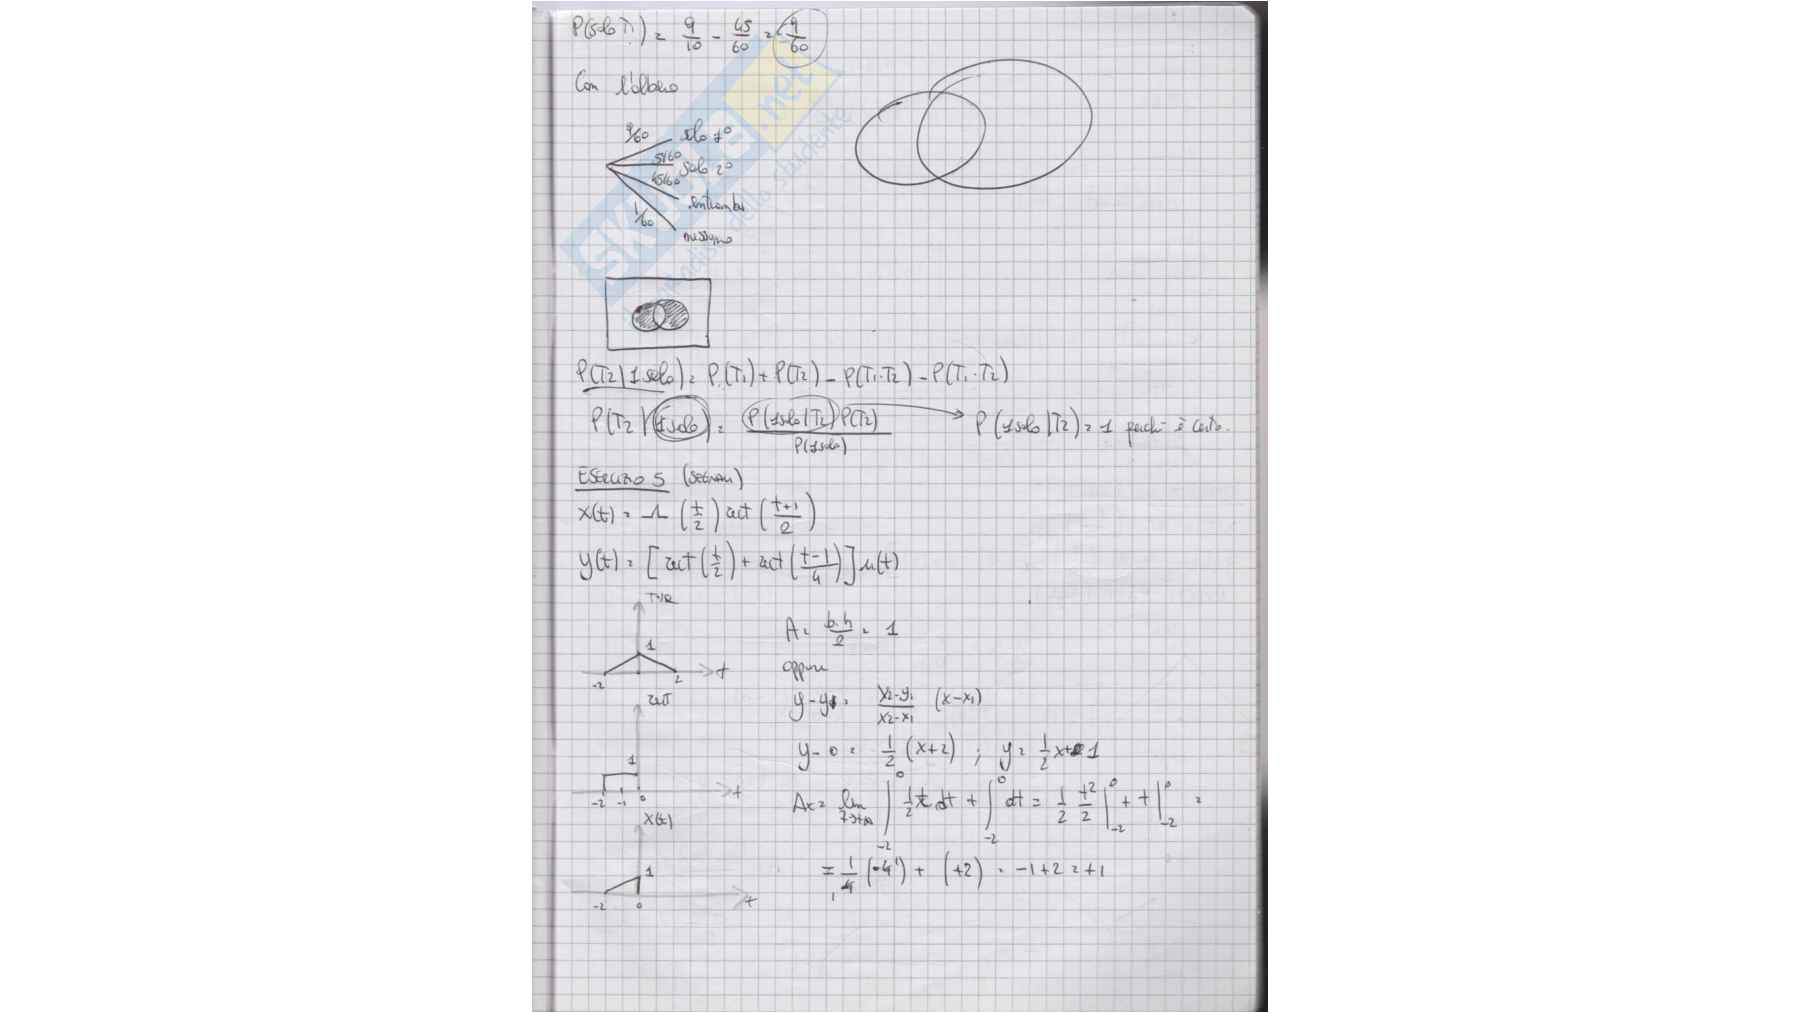 P(solo T₁) = 9/10 - 45/60 = 9/60
Con l'albero
9/60 solo 1°
5/60 solo 2°
45/60 entrambi
1/60 nessuno
SKUOLA.net
P(T₂|1 solo) = P(T₁) + P(T₂) - P(T₁·T₂) - P(T₁·T₂)
P(T₂|1solo) = P(1solo|T₂)P(T₂) / P(1solo) → P(1solo|T₂) = 1 perché è certo.
ESERCIZIO 5 (SEGNALI)
x(t) = Λ(t/2) rect((t+1)/2)
y(t) = [rect(t/2) + rect((t-1)/4)] u(t)
TRI
1
-2 2 t
A = b·h/2 = 1
oppure
y-y₁ = (y₂-y₁)/(x₂-x₁) (x-x₁)
y-0 = 1/2 (x+2) ; y = 1/2 x + 1
rect
1
-2 -1 0 t
Ax = lim ∫₋₂⁰ 1/2 t dt + ∫₋₂⁰ dt = 1/2 t²/2 |₋₂⁰ + t |₋₂⁰ =
= 1/4 (-4) + (+2) = -1+2 = +1
x(t)
1
-2 0 t